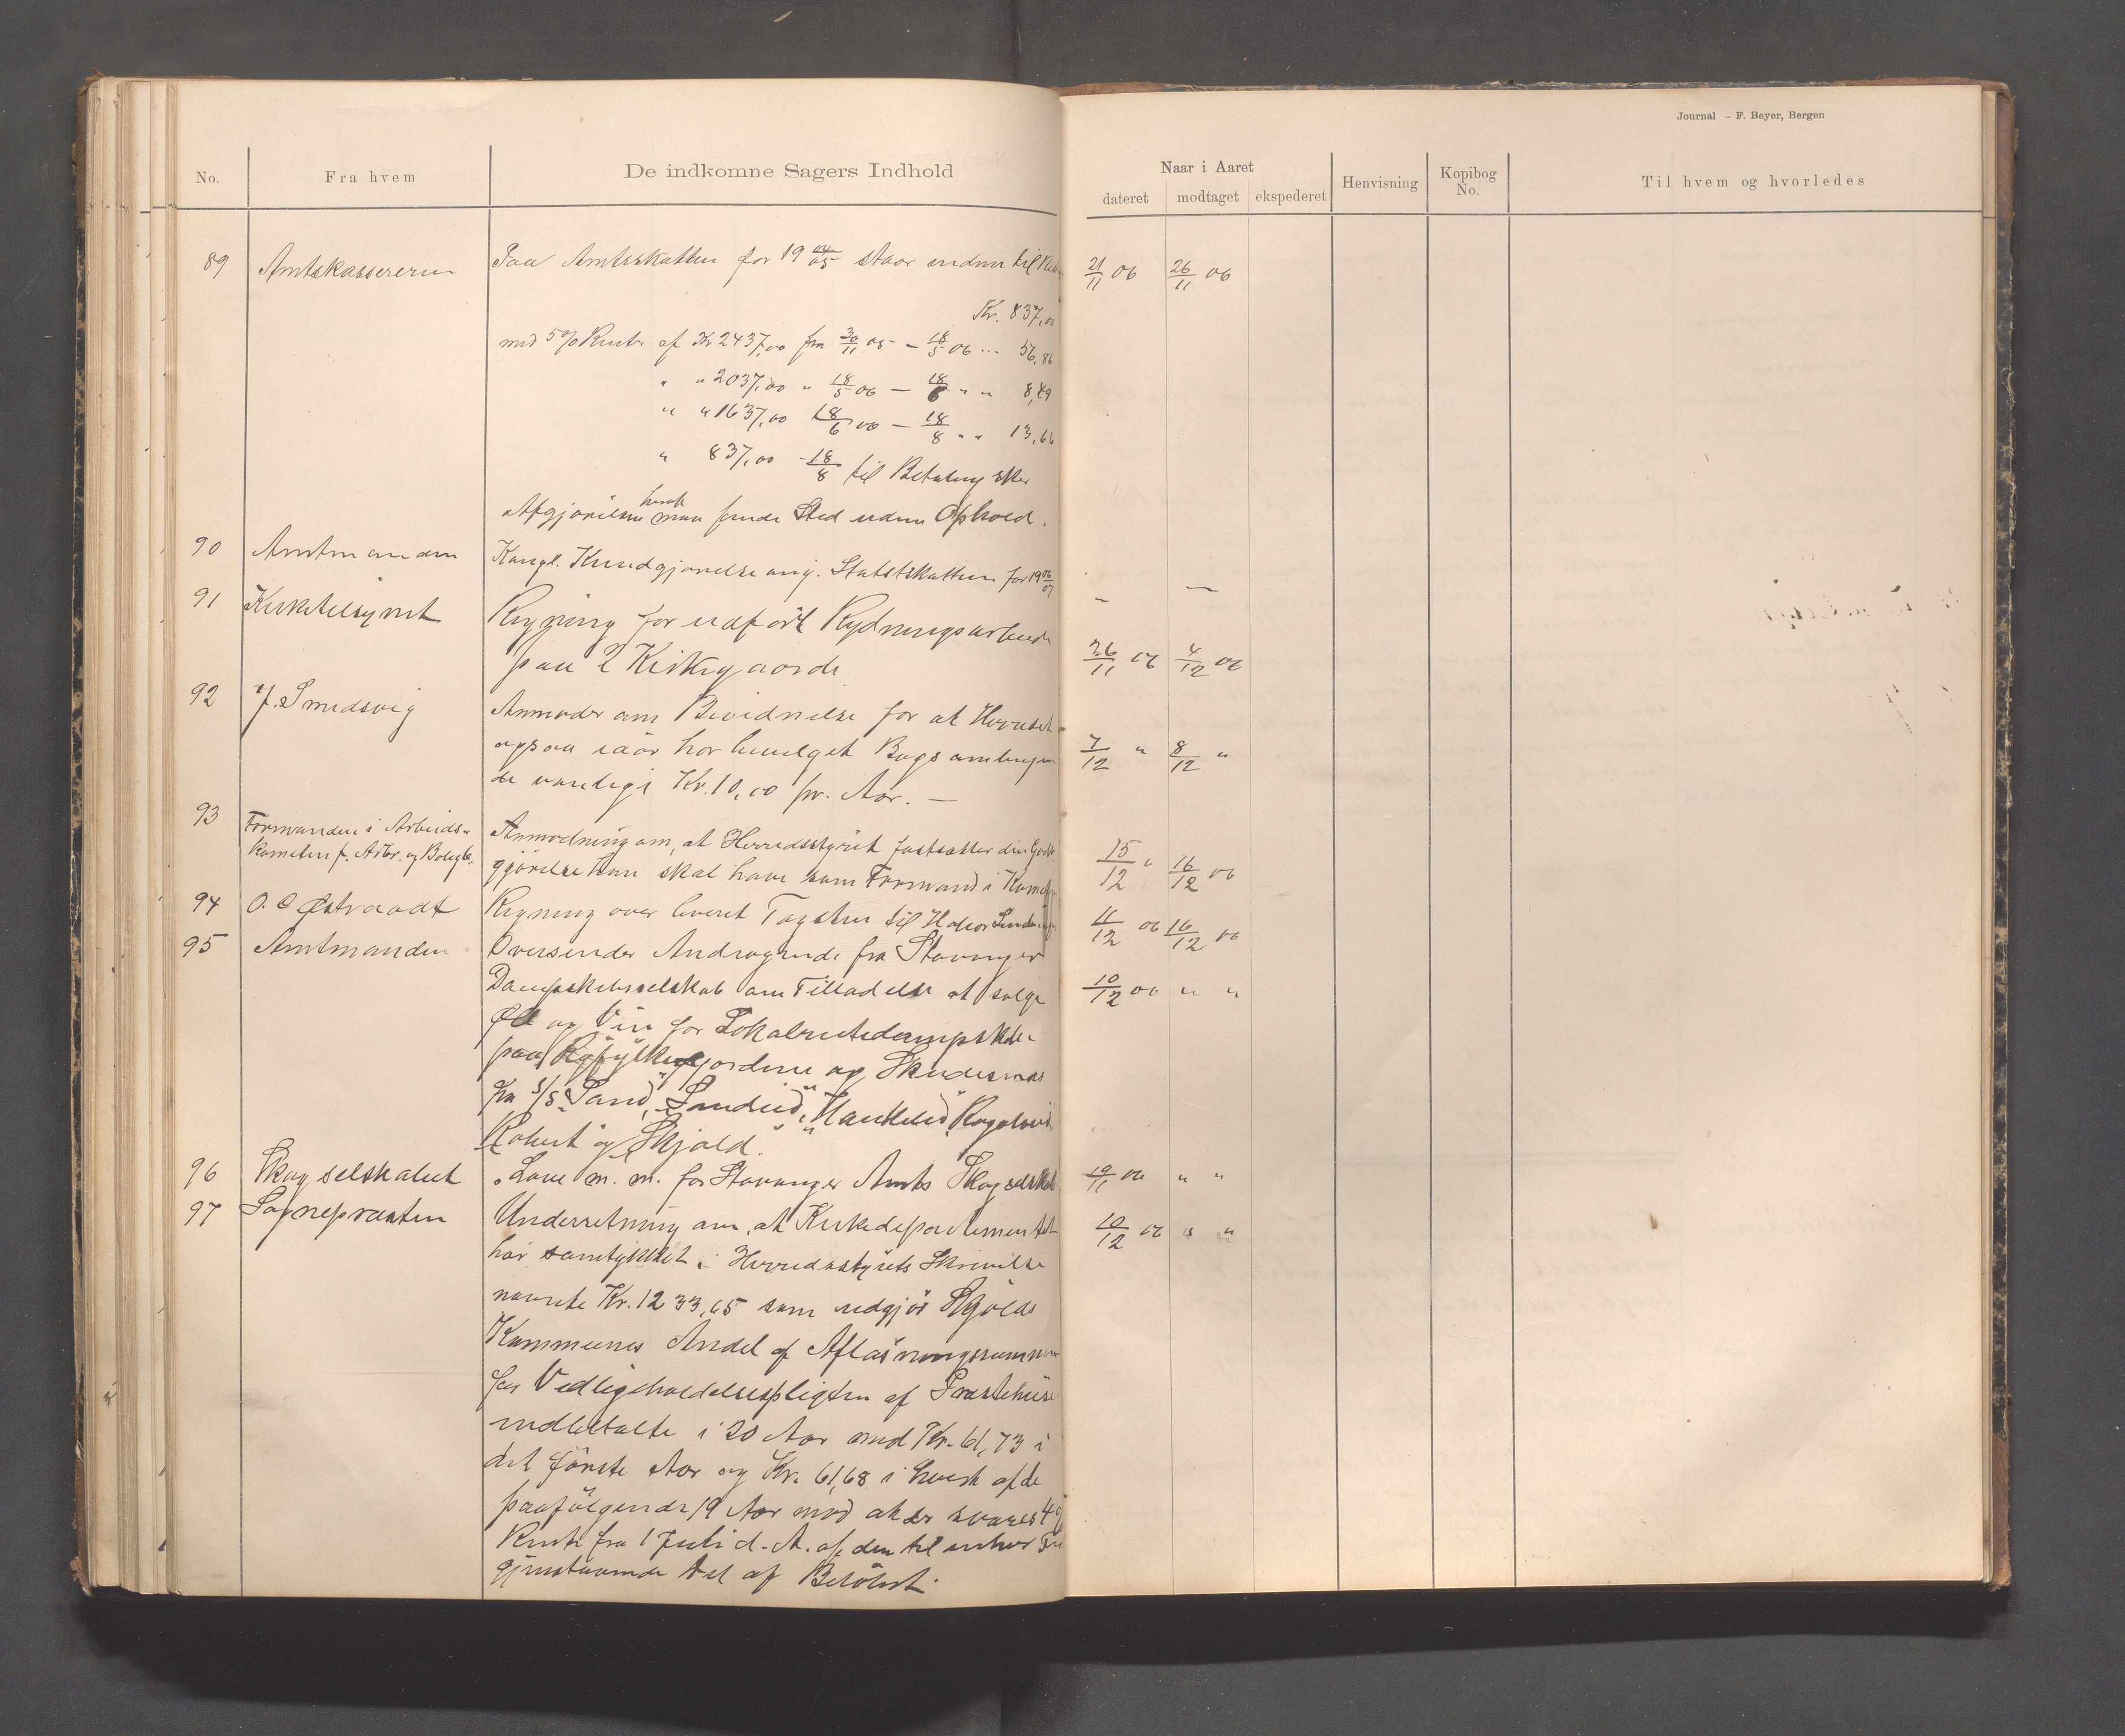 Journal – F. Beyer, Bergen
No. Fra hvem De indkomne Sagers Indhold
Naar i Aaret
dateret modtaget ekspederet Henvisning Kopibog No. Til hvem og hvorledes
89 Amtskassereren Paa Amtsskatten for 19 04/05 staar endnu til 21/11 06 26/11 06
Kr. 837,00
med 5% Renter af Kr 2437,00 fra 30/11 05 – 18/5 06 ... 56,86
" " 2037,00 " 18/5 06 – 18/6 " " 8,49
" " 1637,00 18/6 06 – 18/8 " " 13,66
" 837,00 - 18/8 til Betaling sker
Afgjørelsen heraf maa finde Sted uden Ophold.
90 Amtmanden Kongl. Kundgjørelse ang. Statsskatten for 19 06/07 – –
91 Kirketilsynet Regning for udført Rydningsarbeide
paa 2 Kirkegaarde 26/11 06 4/12 06
92 J. Smedsvig Anmoder om Bevidnelse for at Herredet
ogsaa iaar har bevilget Bogsamlingen 7/12 " 8/12 "
de vanlige Kr. 10,00 pr. Aar. –
93 Formanden i Arbeids-
Komiteen f. Arbr. og Boligb. Anmodning om, at Herredsstyret fastsætter den Godt-
gjørelse han skal have som Formand i Komiteen 15/12 " 16/12 06
94 O. C Østraadt Regning over leveret Tagsten til 11/12 06 16/12 06
95 Amtmanden Oversender Andragende fra Stavanger
Dampskibsselskab om Tilladelse at sælge 10/12 06 " "
Øl og Vin for Lokalrutedampskibe
paa Ryfylkefjordene og Skudesnæs
fra S/S "Sand", "Sandeid", "Haukelid",
Robert" og "Skjold".
96 Skogselskabet "Love m. m. for Stavanger Amts Skogselskab 19/11 06 " "
97 Sognepræsten Underretning om, at Kirkedepartementet 10/12 06 " "
har samtykket i Herredsstyrets Skrivelse
nævnte Kr. 1233,65 som udgjør Skjolds
Kommunes Andel af Afløsningssummen
for Vedligeholdelsespligten af Præstehuse
indbetalte i 20 Aar med Kr. 61,73 i
det første Aar og Kr. 61,68 i hvert af de
paafølgende 19 Aar mod at der svares 4 %
Rente fra 1 Juli d. A. af den til enhver Tid
gjenstaaende Del af Beløbet.